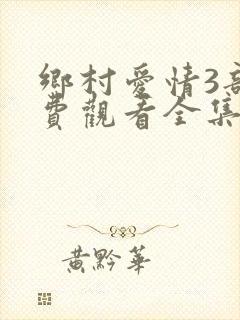 鄉村愛情3高
費觀看全集
黃黔華